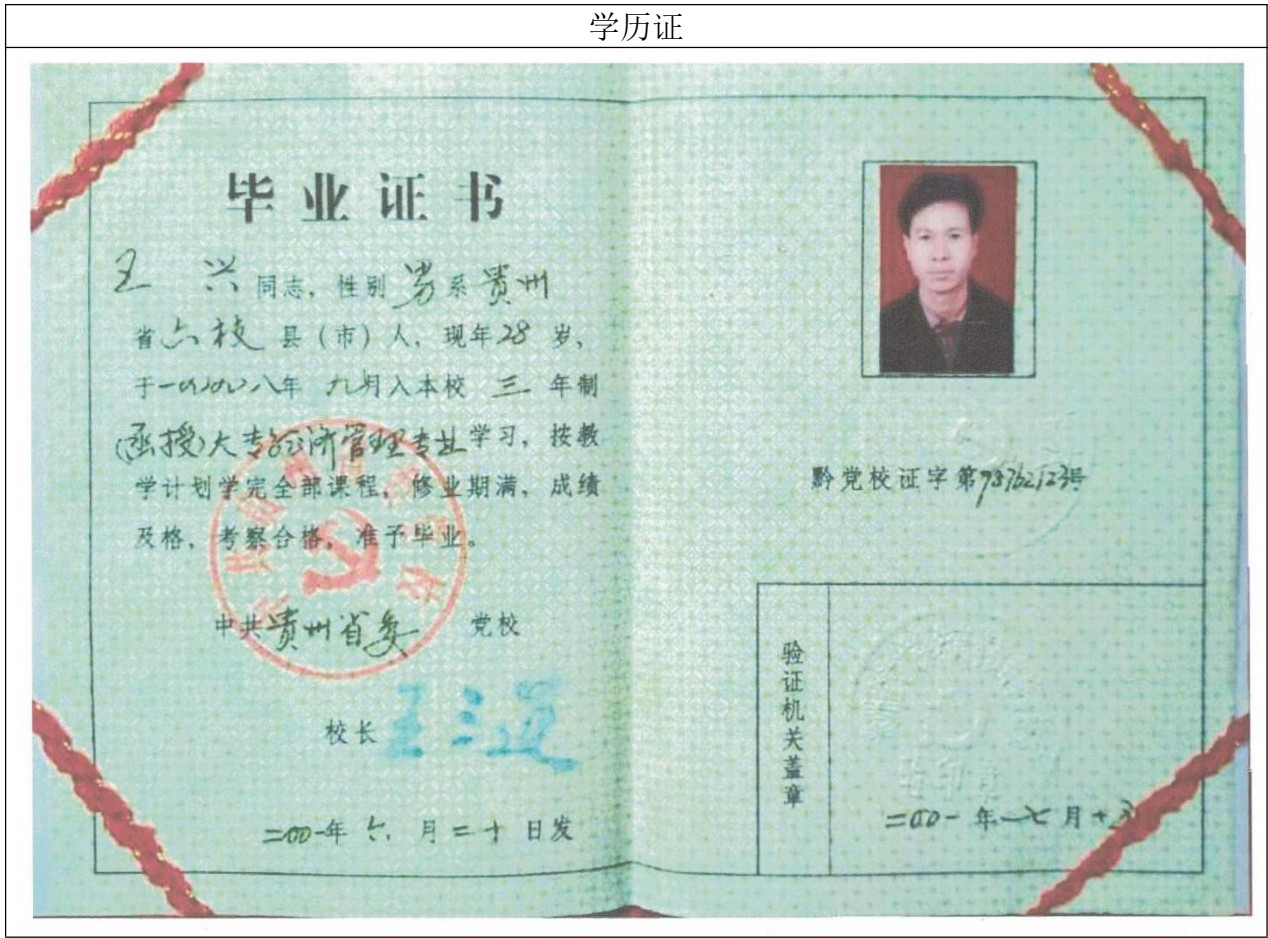 学历证
毕业证书
王兴同志，性别男系贵州
省六枝县（市）人，现年28岁，
于一九九八年九月入本校三年制
（函授）大专经济管理专业学习，按教
学计划学完全部课程，修业期满，成绩
及格，考察合格，准予毕业。
中共贵州省委党校
校长
二00一年六月二十日发
黔党校证字第98762123号
验证机关盖章
二00一年七月十